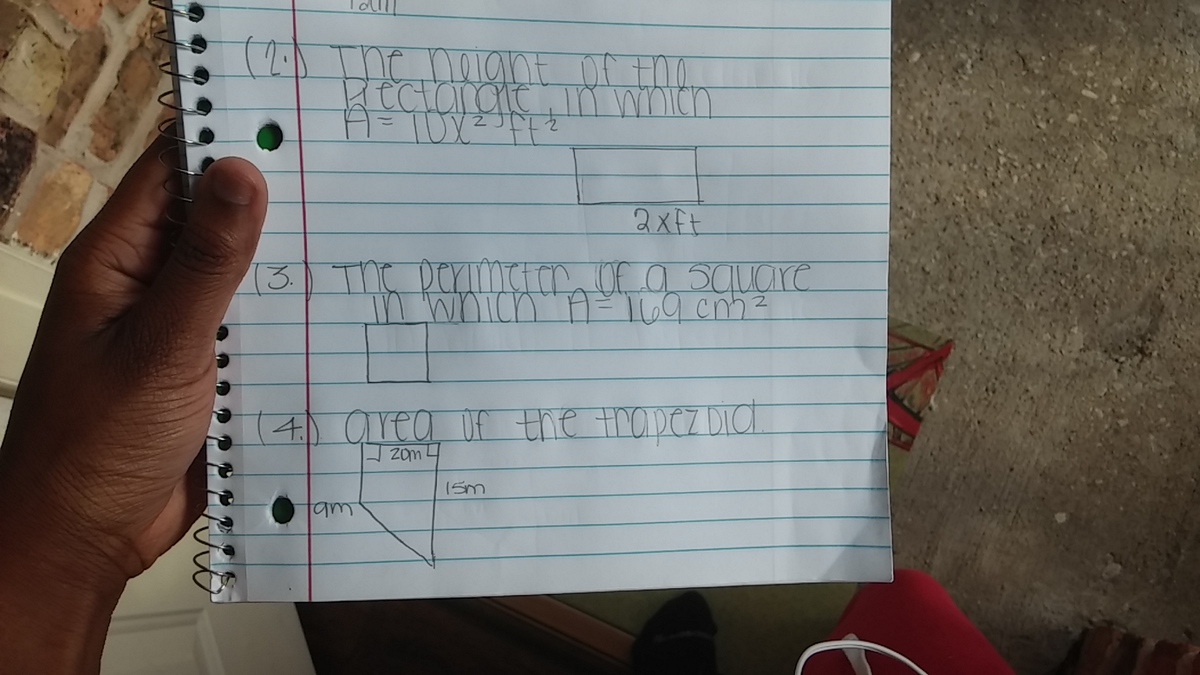 (2.) The height of the
Rectangle, in which
A = 10x² ft²
2x ft
(3.) The perimeter of a square
in which A = 169 cm²
(4.) area of the trapezoid.
20m
15m
9m